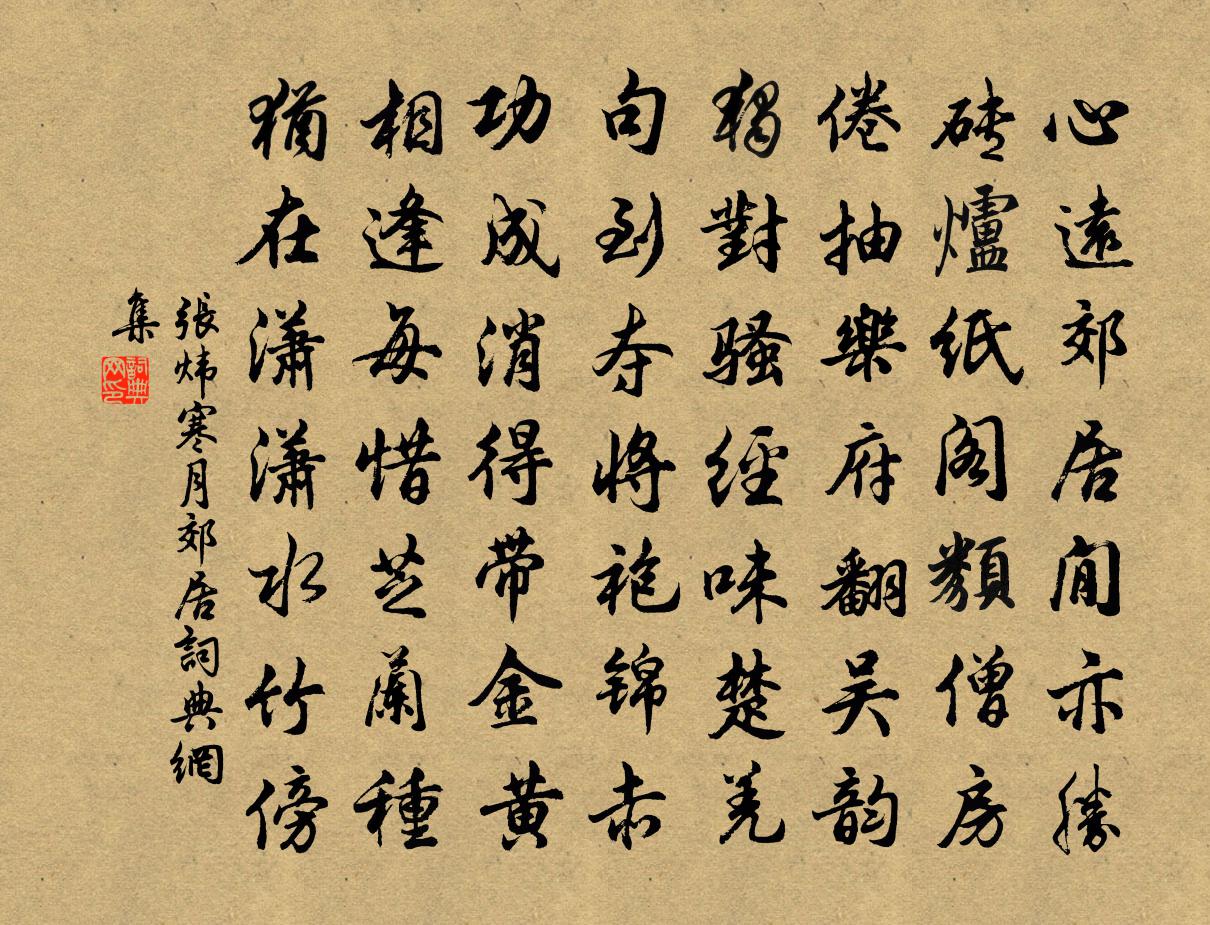 心遠郊居閒亦勝
磚爐紙閣類僧房
倦抽樂府翻吴韵
獨對騷經味楚羌
句到夺將袍锦赤
功成消得带金黄
相逢每惜芝蘭種
猶在瀟瀟水竹傍
張炜寒月郊居詞典網
集
詞典
网印